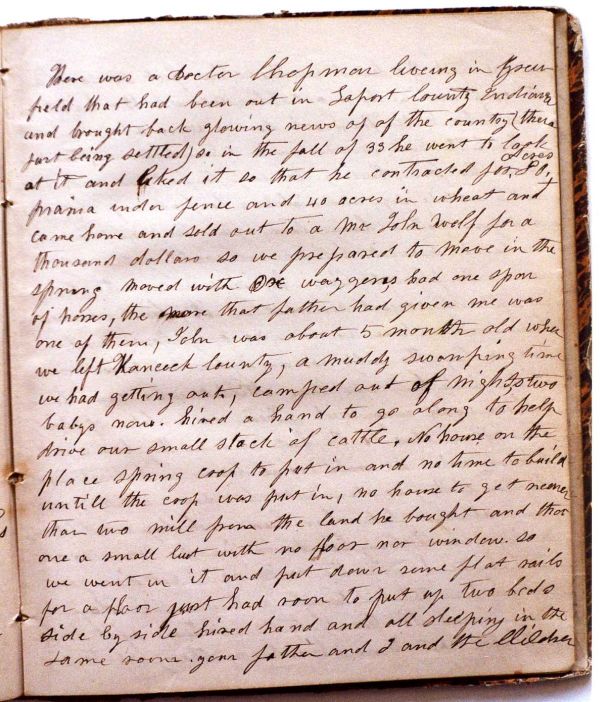 There was a Doctor Chapman liveing in Green
field that had been out in Laport County Indiana
and brought back glowing news of of the country (there
just being settled) so in the fall of 33 he went to look
at it and liked it so that he contracted for 80 acres
prairia under fence and 40 acres in wheat and
came home and sold out to a Mr John Wolf for a
thousand dollars so we prepared to move in the
spring moved with Ox waggens had one span
of horses, the mare that father had given me was
one of them, John was about 5 month old when
we left Hancock County, a muddy swamping time
we had getting out, camped out of nights two
babys now. hired a hand to go along to help
drive our small stock of cattle. No house on the
place spring coop to put in and no time to build
untill the coop was put in, no house to get nearer
than two mill from the land he bought and that
one a small hut with no floor nor window. so
we went in it and put down some flat rails
for a floor just had room to put up two beds
side by side hired hand and all sleeping in the
same room. your father and I and the Children